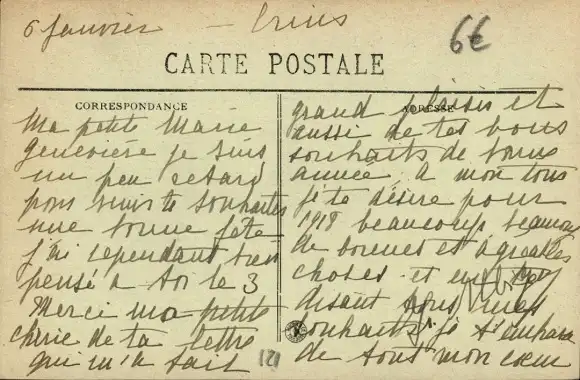 6 Janvier —
6€
CARTE POSTALE
CORRESPONDANCE
ADRESSE
Ma petite Marie
Geneviève je suis
un peu retard
pour venir te souhaiter
une bonne fête
j'ai cependant bien
pensé à toi le 3
Merci ma petite
chérie de ta lettre
qui m'a fait
grand plaisir et
aussi de tes bons
souhaits de bonne
année, à mon tour
je te désire pour
1918 beaucoup beaucoup
de bonnes et agréables
choses et en te
disant
souhaits je t'embrasse
de tout mon cœur